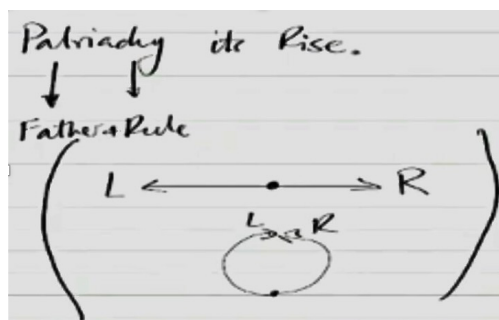 Patriachy its Rise.
Father + Rule
L R
L R